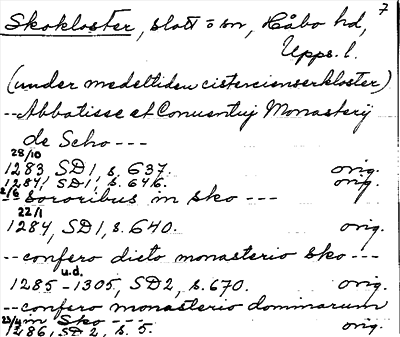 7
Skokloster, slott o sn, Håbo hd,
Upps. l.
(under medeltiden cistercienserkloster)
-- Abbatisse et Conuentuj Monasterij
de Scho ---
28/10
1283, SD1, s. 637. orig.
1284, SD1, s. 646. orig.
2/6
-- Sororibus in sko ---
22/1
1284, SD1, s. 640. orig.
-- confero dicto monasterio sko ---
u.d.
1285-1305, SD2, s. 670. orig.
-- confero monasterio dominarum
in Sko ---
23/4
1286, SD2, s. 5. orig.